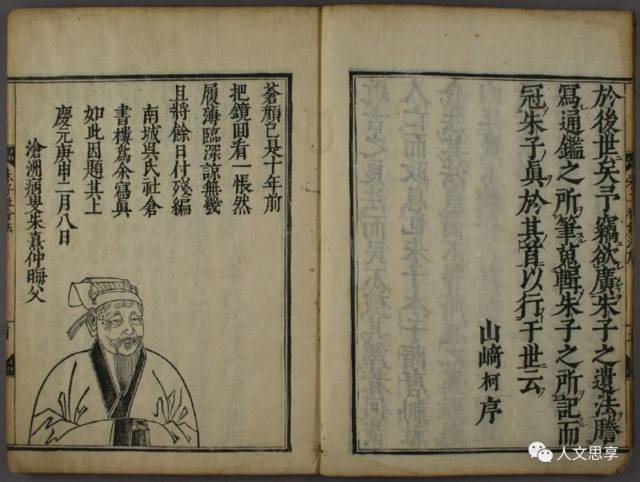 於後世矣予竊欲廣朱子之遺法謄
寫通鑑之所筆蒐輯朱子之所記而
冠朱子眞於其首以行于世云
山﨑柯序
蒼顔已是十年前
把鏡囬看一悵然
履薄臨深諒無幾
且將餘日付殘編
南城吳氏社倉
書樓爲余寫眞
如此因題其上
慶元庚申二月八日
滄洲病叟朱熹仲晦父
人文思享